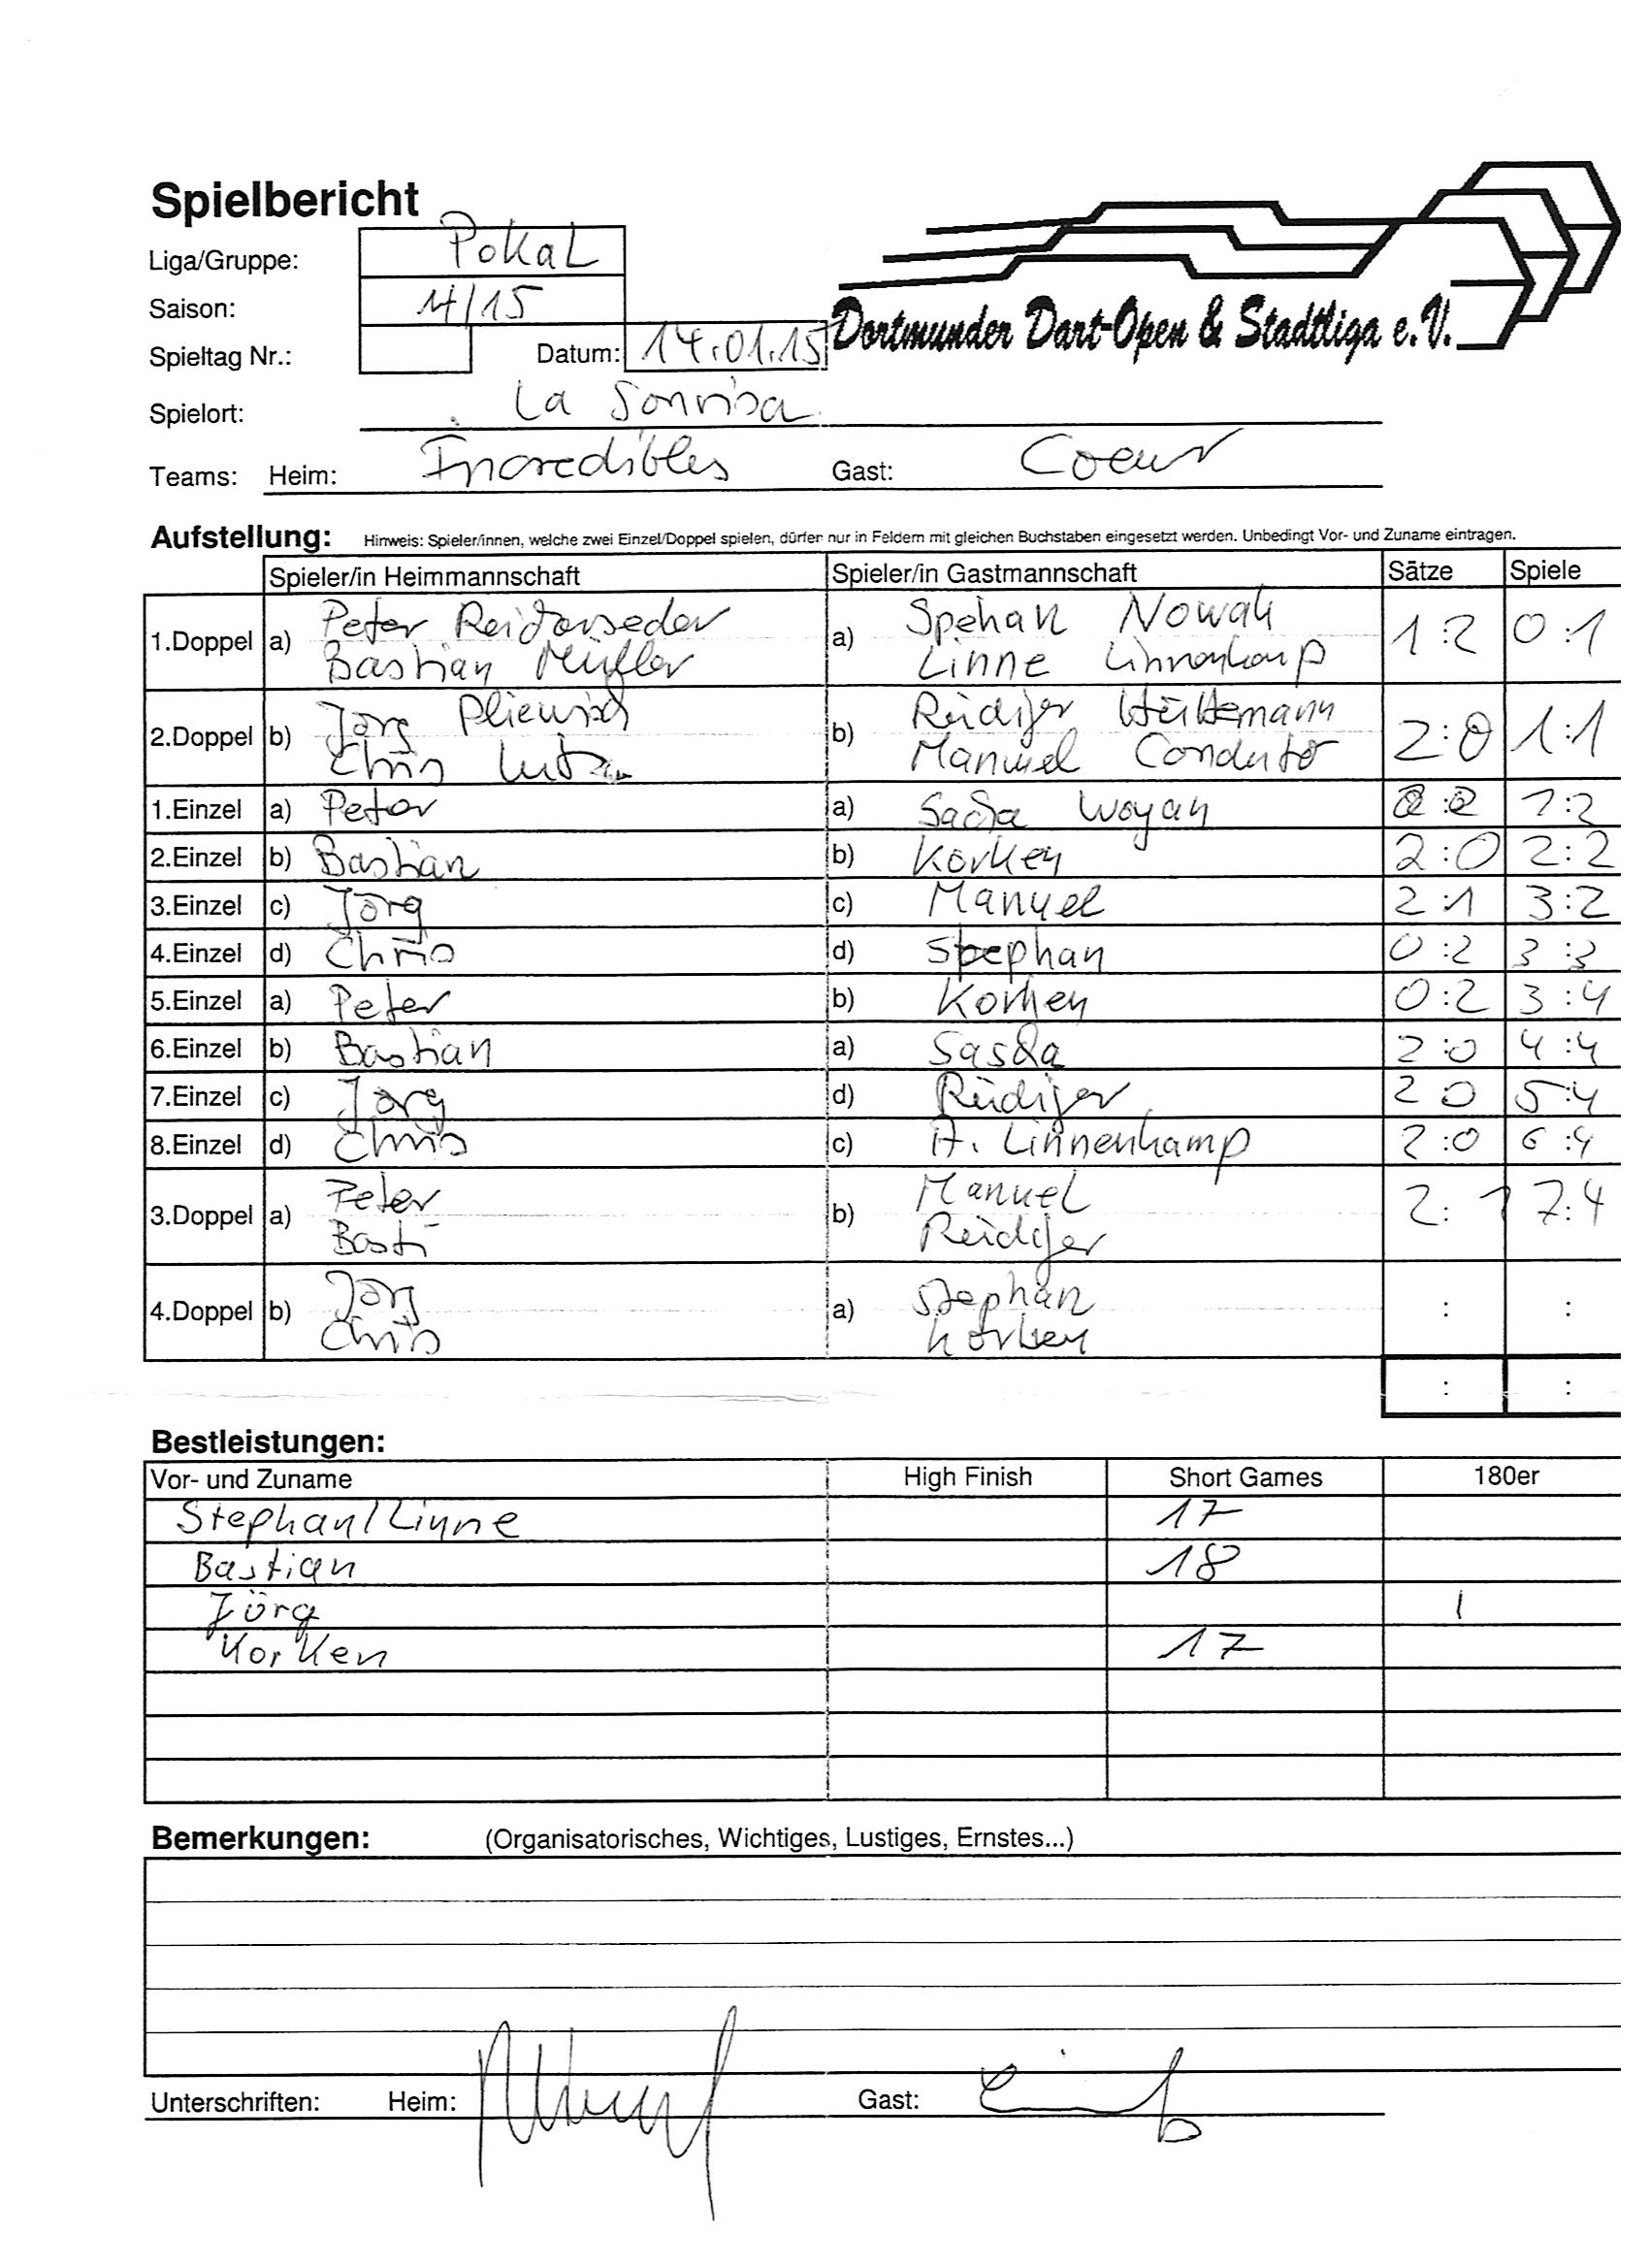 Spielbericht
Liga/Gruppe: Pokal
Saison: 14/15
Spieltag Nr.: Datum: 14.01.15
Dortmunder Dart-Open & Stadtliga e.V.
Spielort: La Sonrisa
Teams: Heim: Incredibles Gast: Coeur
Aufstellung: Hinweis: Spieler/innen, welche zwei Einzel/Doppel spielen, dürfen nur in Feldern mit gleichen Buchstaben eingesetzt werden. Unbedingt Vor- und Zuname eintragen.
Spieler/in Heimmannschaft Spieler/in Gastmannschaft Sätze Spiele
1.Doppel a) Peter a) Spehan Nowak 1:2 0:1
Bastian Müller Linne Linnenkamp
2.Doppel b) Jörg b) Rüdiger 2:0 1:1
Chris Manuel
1.Einzel a) Peter a) Sascha Woyan 1:2
2.Einzel b) Bastian b) Korken 2:0 2:2
3.Einzel c) Jörg c) Manuel 2:1 3:2
4.Einzel d) Chris d) Stephan 0:2 3:3
5.Einzel a) Peter b) Korken 0:2 3:4
6.Einzel b) Bastian a) Sascha 2:0 4:4
7.Einzel c) Jörg d) Rüdiger 2 0 5:4
8.Einzel d) Chris c) A. Linnenkamp 2:0 6:4
3.Doppel a) Peter b) Manuel 2:1 7:4
Basti Rüdiger
4.Doppel b) Jörg a) Stephan : :
Chris Korken
: :
Bestleistungen:
Vor- und Zuname High Finish Short Games 180er
Stephan/Linne 17
Bastian 18
Jörg I
Korken 17
Bemerkungen: (Organisatorisches, Wichtiges, Lustiges, Ernstes...)
Unterschriften: Heim: Gast: